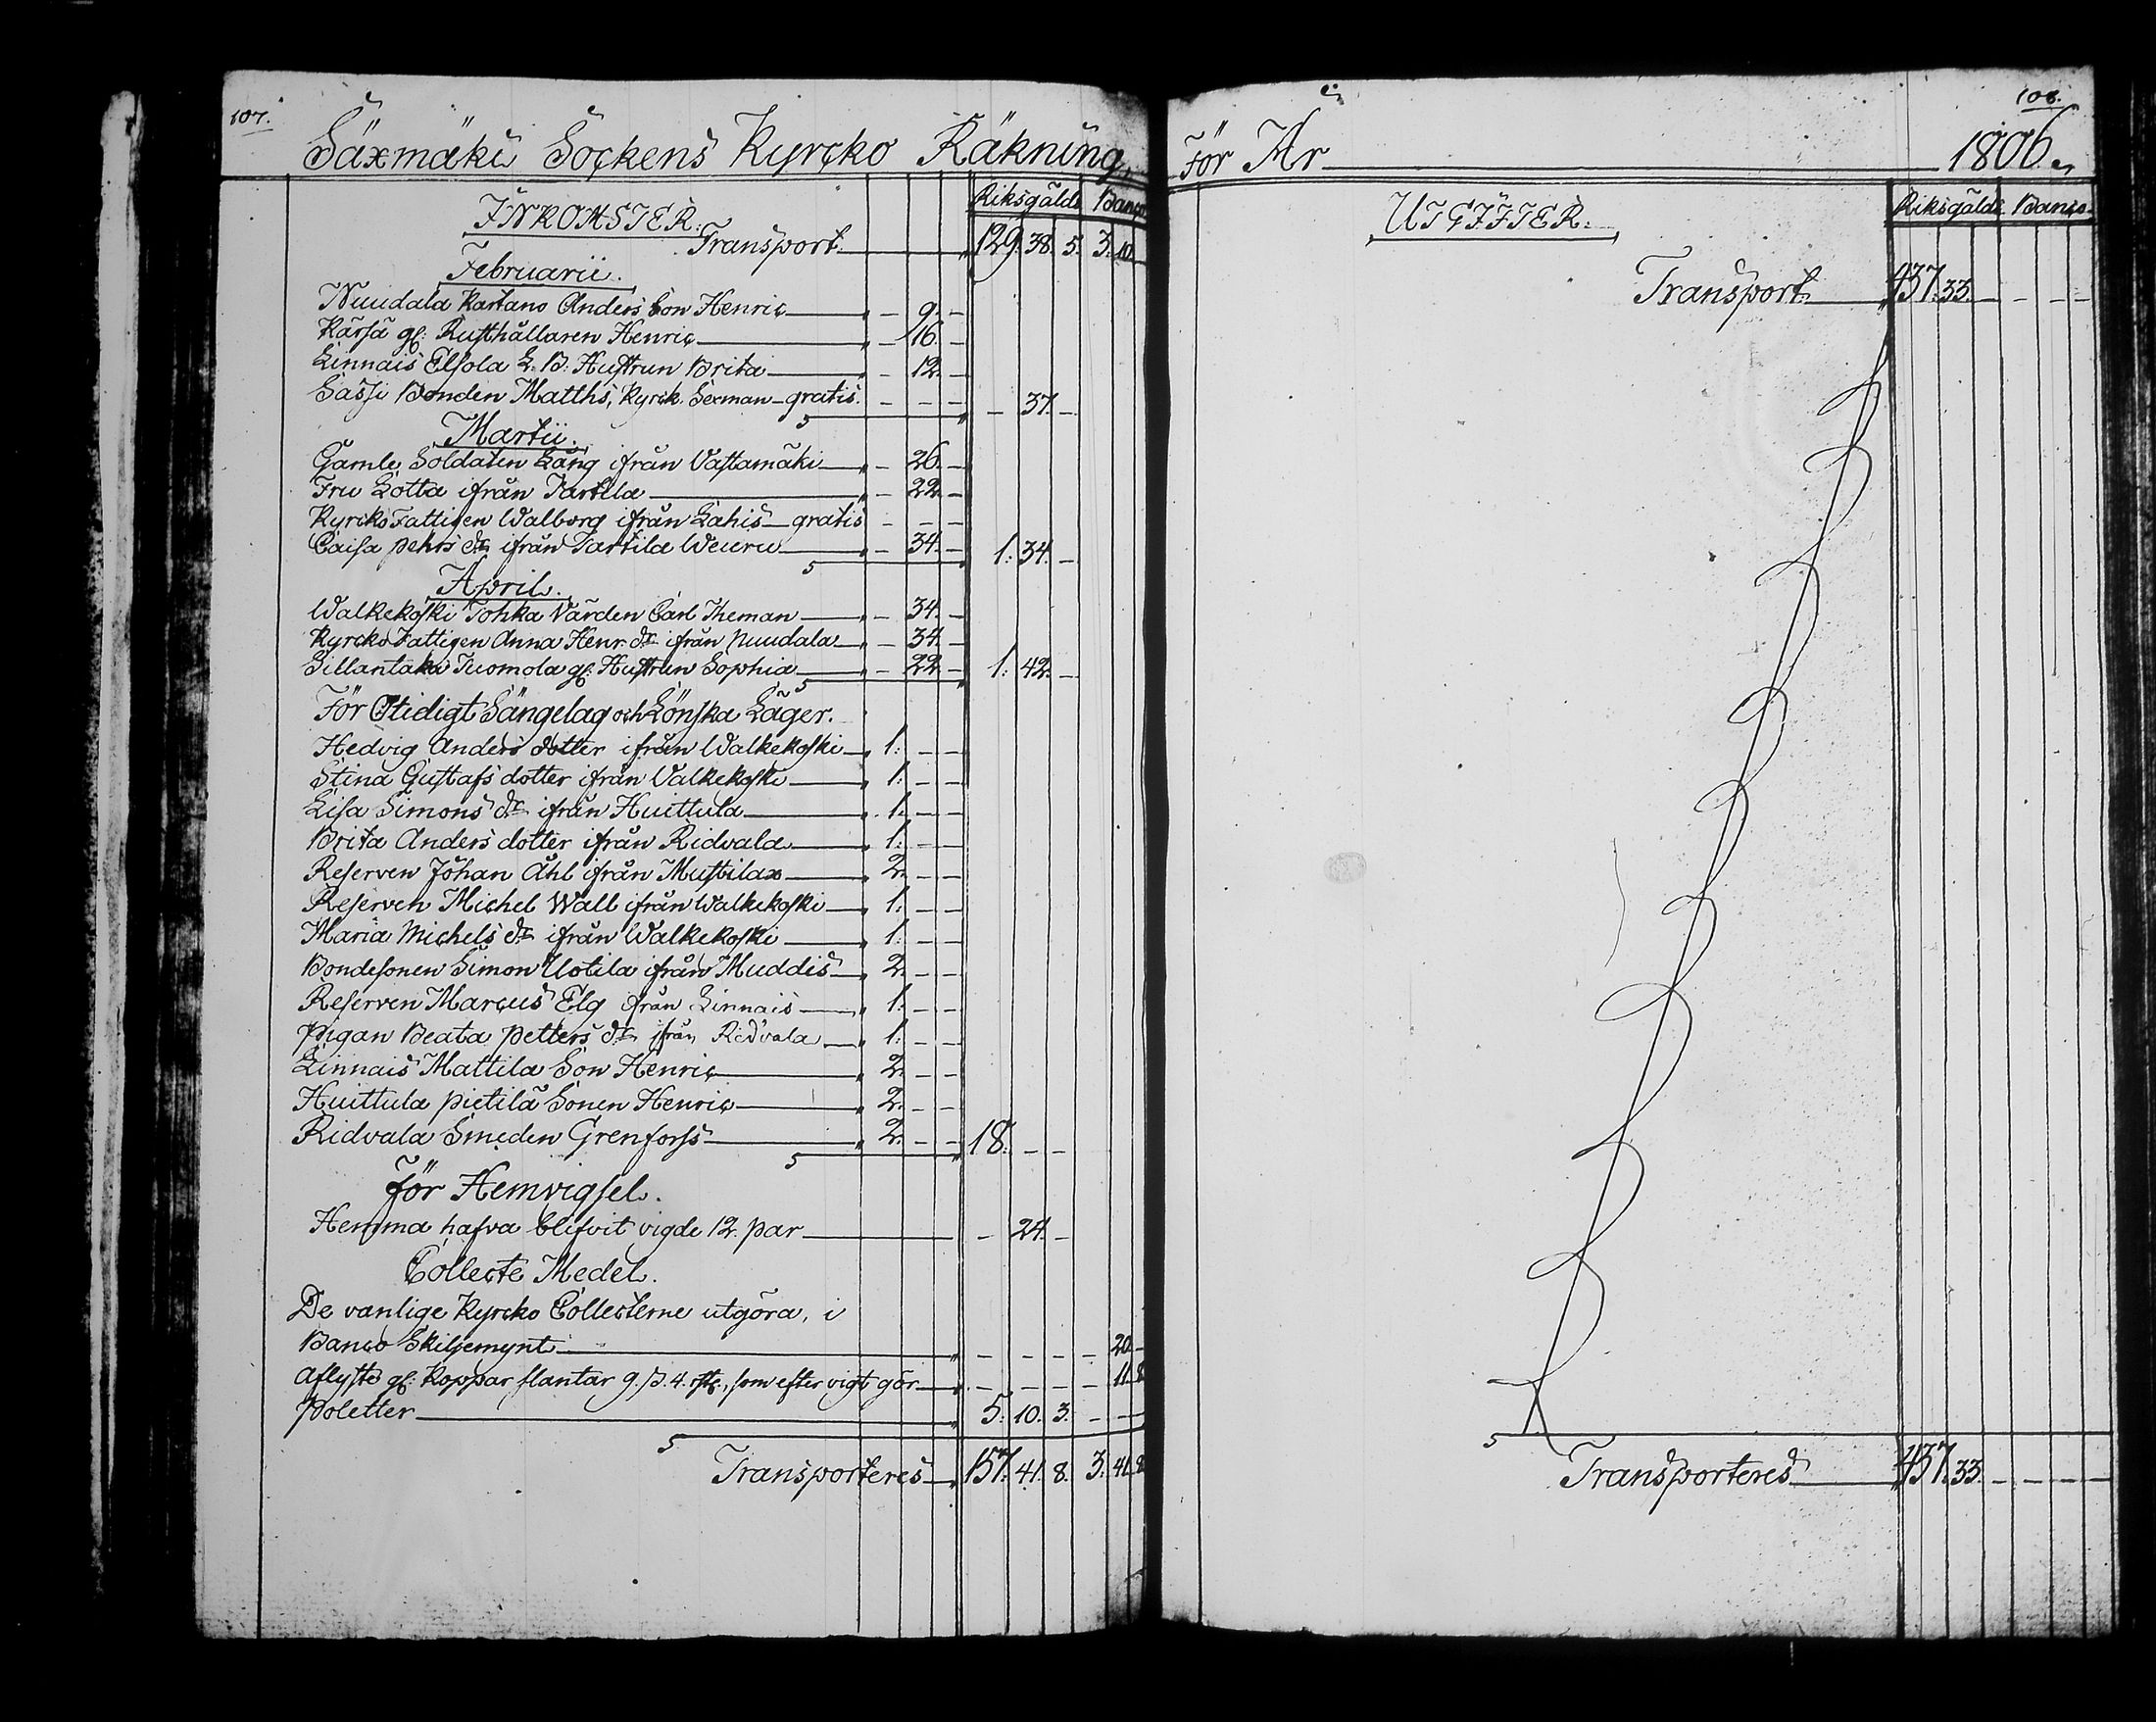 107.
Säxmäki Sockens Kyrcko Räkning,
Riksgälds Banco
INKOMSTER.
Transport 129. 38. 5. 3. 10.
Februarii.
Nuudala Kartano Anders Son Henric — 9. —
Kärsä gl: Rusthållaren Henric — 16. —
Linnais Elsola L. B. Hustrun Brita — 12. —
Sassi Bonden Matths, Kyrck. Sexman gratis. — — —
— 37. —
Martii.
Gamle Soldaten Lång ifrån Vastamäki — 26. —
Fru Lotta ifrån Tartila — 22. —
Kyrcko Fattigen Walborg ifrån Lahis gratis — — —
Caisa Pehrs dr ifrån Tartila Weuru — 34. — 1. 34. —
April.
Walkekoski Tohka Värden Carl Theman — 34. —
Kyrcko Fattigen Anna Henr. dr ifrån Nuudala — 34. —
Sillantaka Tuomola gl: Hustrun Sophia — 22. — 1. 42. —
För Otidigt Sängelag och Lönska Läger.
Hedvig Anders dotter ifrån Walkekoski 1: — —
Stina Gustafs dotter ifrån Valkekoski 1: — —
Lisa Simons dr ifrån Huittula 1. — —
Brita Anders dotter ifrån Ridvala 1: — —
Reserven Johan Åhl ifrån Mustila 2. — —
Reserven Michel Wall ifrån Walkekoski 1: — —
Maria Michels dr ifrån Walkekoski 1: — —
Bondesonen Simon Uotila ifrån Muddis 2. — —
Reserven Marcus Elg ifrån Linnais 1: — —
Pigan Beata Petters dr ifrån Ridvala 1: — —
Linnais Mattila Son Henric 2. — —
Huittula Pietilä Sonen Henric 2. — —
Ridvala Smeden Grenforss 2. — — 18. — —
För Hemvigsel.
Hemma hafva blifvit vigde 12. par — 24. —
Collecte Medel.
De vanlige Kyrcko Collecterne utgöra, i
Banco Skiljemynt — — — — 20. —
aflyste gl: Koppar slantar 9. 4. som efter vigt gör — — — — 11. 8
Poletter 5. 10. 3. — — —
Transporteres 157. 41. 8. 3. 41. 8
108.
För År 1806.
Riksgälds Banco.
UTGIFTER.
Transport 437. 33. — — — —
Transporteres 437. 33. — — — —